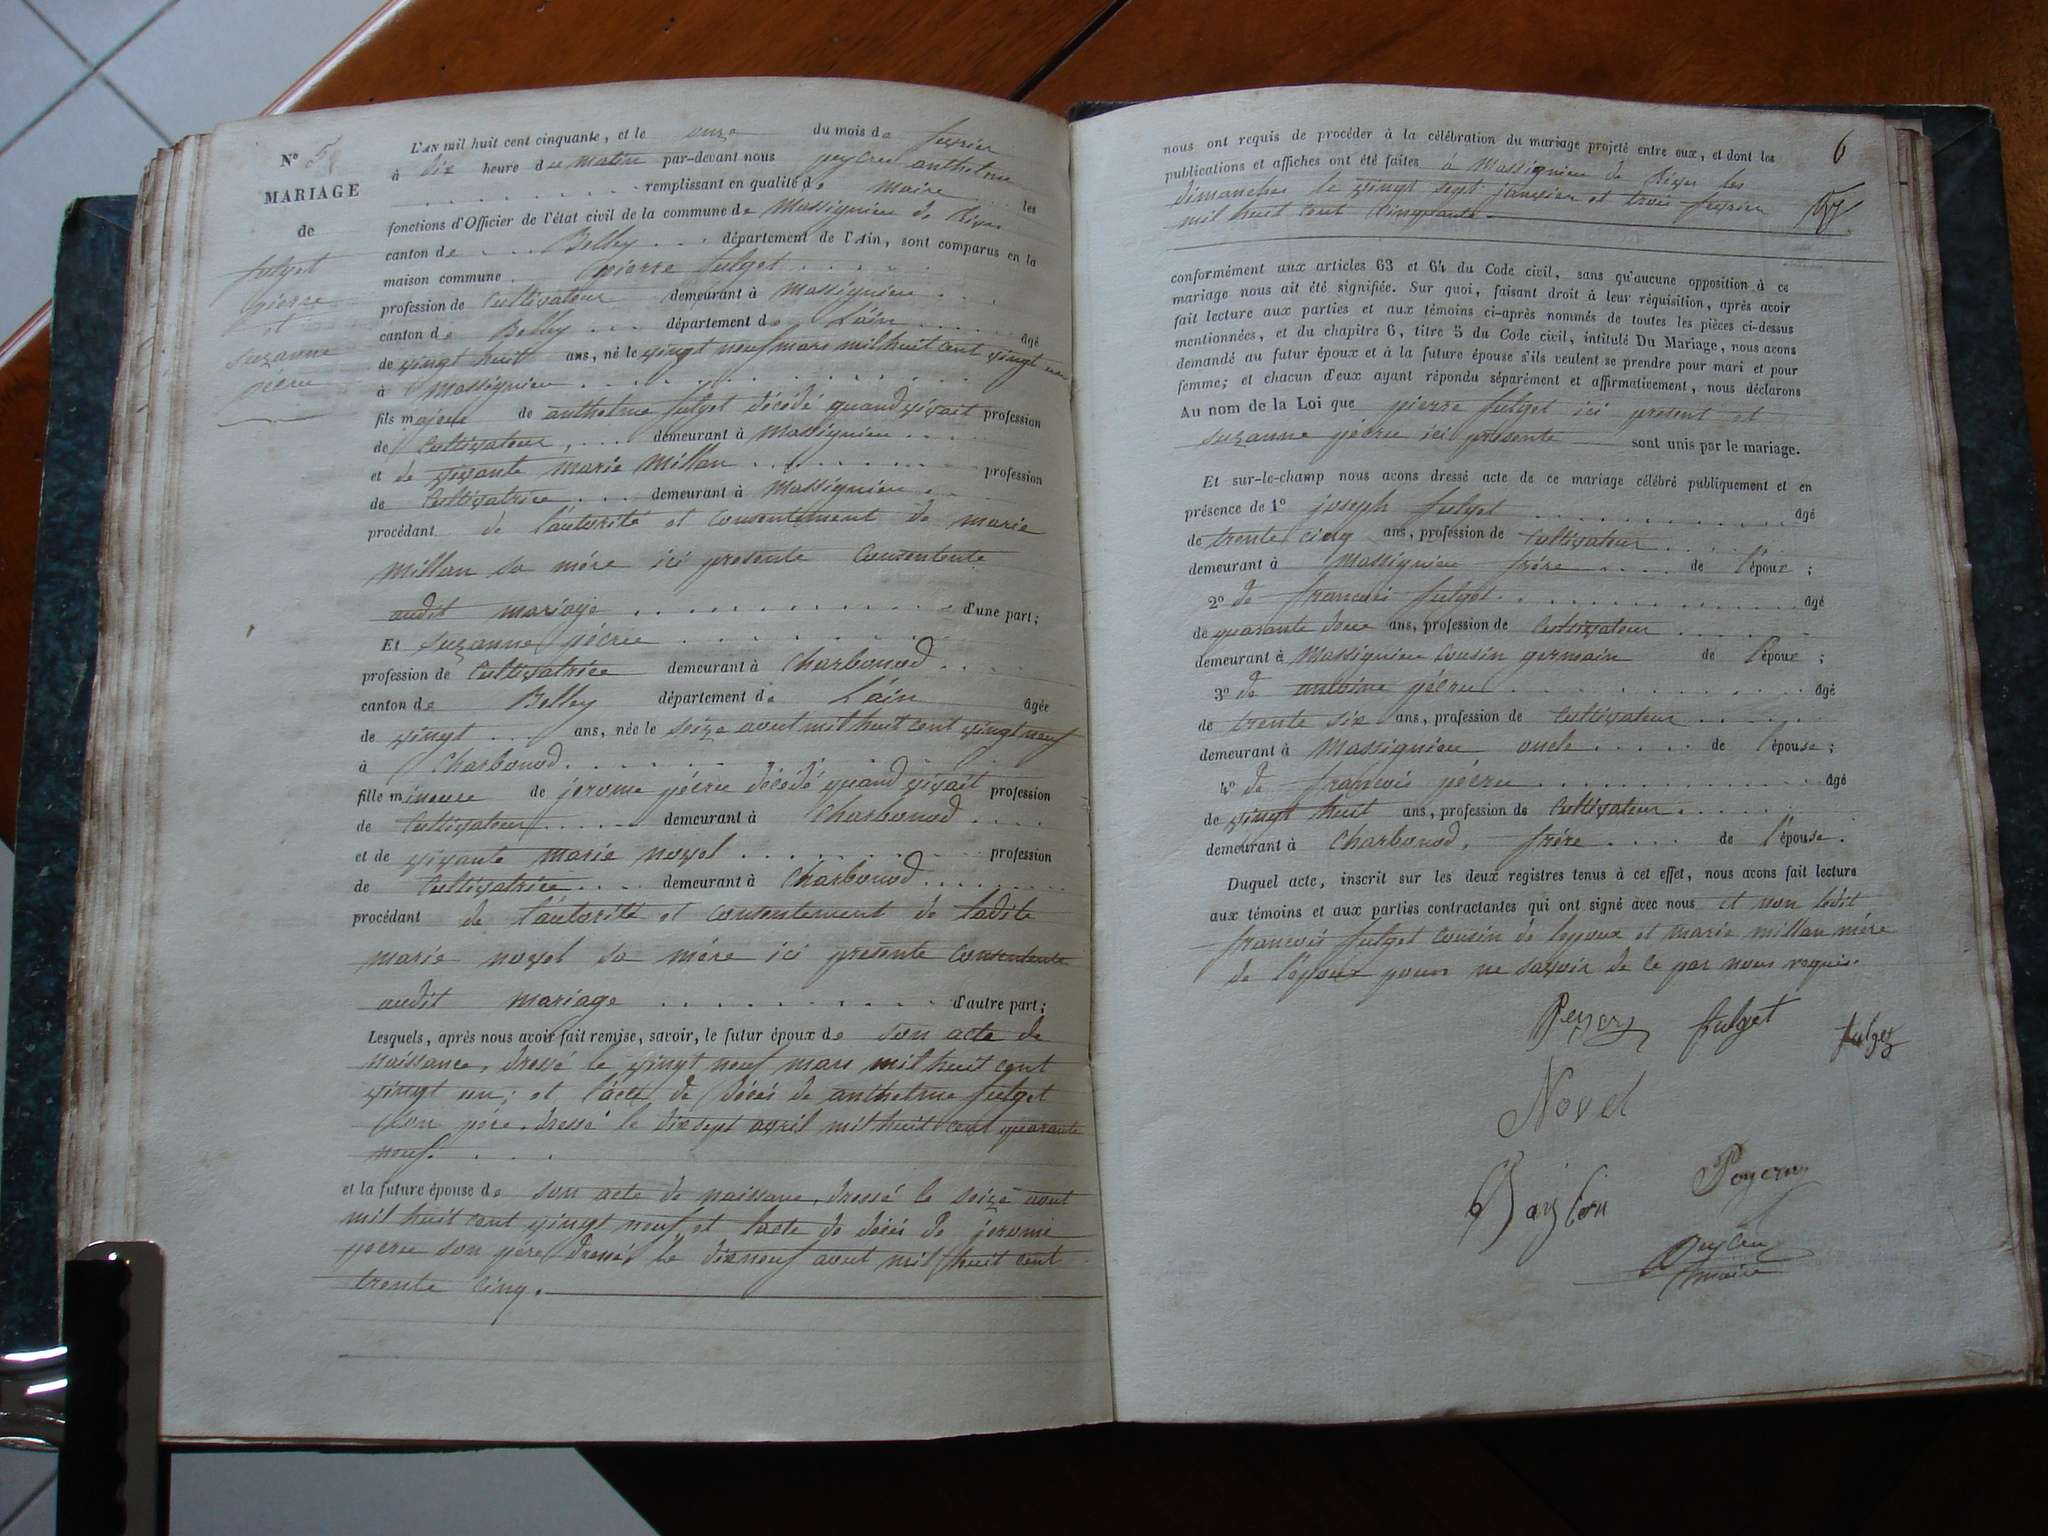 N° 5
MARIAGE
de
fulget
pierre
et
suzanne
pécru
L'AN mil huit cent cinquante, et le onze du mois de fevrier
à dix heure du matin par-devant nous anthelme
remplissant en qualité de maire les
fonctions d'Officier de l'état civil de la commune de Massignieu de Rives
canton de Belley département de l'Ain, sont comparus en la
maison commune pierre fulget
profession de Cultivateur demeurant à Massignieu
canton de Belley département de Láin âgé
de vingt huit ans, né le vingt neuf mars mil huit cent vingt un
à Massignieu
fils majeur de anthelme fulget décédé quand vivait profession
de Cultivateur, demeurant à Massignieu
et de vivante marie Millan profession
de Cultivatrice demeurant à Massignieu
procédant de l'autorité et consentement de marie
millan sa mére ici presente Consentente
audit mariage d'une part;
Et suzanne pécru
profession de Cultivatrice demeurant à Charbonod
canton de Belley département de Láin âgée
de vingt ans, née le seize aout mil huit cent vingt neuf
à Charbonod
fille mineure de jerome pécru décédé quand vivait profession
de Cultivateur demeurant à Charbonod
et de vivante marie novel profession
de Cultivatrice demeurant à Charbonod
procédant de l'autorité et consentement de ladite
marie novel sa mére ici presente Consentente
audit mariage d'autre part;
Lesquels, après nous avoir fait remise, savoir, le futur époux de son acte de
naissance, dressé le vingt neuf mars mil huit cent
vingt un; et l'acte de décés de anthelme fulget
son pére, dressé le dix sept avril mil huit cent quarante
neuf.
et la future épouse de son acte de naissane, dressé le seize aout
mil huit cent vingt neuf et lacte de décés de jerome
pecru son pére, dressé, le dix neuf aout mil huit cent
trente cinq.
6
nous ont requis de procéder à la célébration du mariage projeté entre eux, et dont les
publications et affiches ont été faites à Massignieu de Rives les
dimanches le vingt sept janvier et trois fevrier
mil huit cent cinquante
conformément aux articles 63 et 64 du Code civil, sans qu'aucune opposition à ce
mariage nous ait été signifiée. Sur quoi, faisant droit à leur réquisition, après avoir
fait lecture aux parties et aux témoins ci-après nommés de toutes les pièces ci-dessus
mentionnées, et du chapitre 6, titre 5 du Code civil, intitulé Du Mariage, nous avons
demandé au futur époux et à la future épouse s'ils veulent se prendre pour mari et pour
femme; et chacun d'eux ayant répondu séparément et affirmativement, nous déclarons
Au nom de la Loi que pierre fulget ici present et
suzanne pécru ici presente sont unis par le mariage.
Et sur-le-champ nous avons dressé acte de ce mariage célébré publiquement et en
présence de 1° joseph fulget âgé
de trente cinq ans, profession de Cultivateur
demeurant à Massignieu frére de l'époux;
2° de francois fulget âgé
de quarante deux ans, profession de Cultivateur
demeurant à Massignieu cousin germain de l'époux;
3° de antoine pécru âgé
de trente six ans, profession de Cultivateur
demeurant à Massignieu oncle de l'épouse;
4° de francois pécru âgé
de vingt huit ans, profession de Cultivateur
demeurant à Charbonod, frére de l'épouse.
Duquel acte, inscrit sur les deux registres tenus à cet effet, nous avons fait lecture
aux témoins et aux parties contractantes qui ont signé avec nous et non ledit
francois fulget cousin de lepoux et marie millan mére
de l'epoux pour ne savoir de ce par nous requis.
fulget
Novel
maire